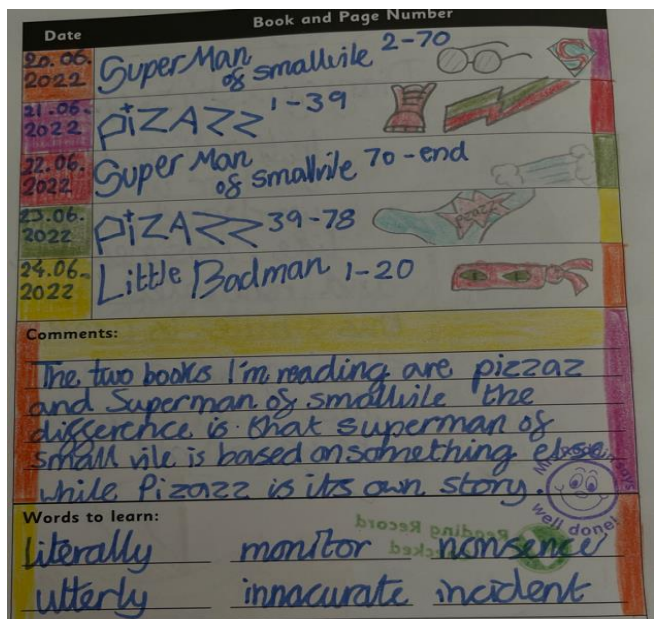 Date Book and Page Number
20.06. 2022 Super Man of smallvile 2-70
21.06. 2022 PiZAZZ 1-39
22.06. 2022 Super Man of smallvile 70-end
23.06. 2022 PiZAZZ 39-78
Pzazz
24.06. 2022 Little Badman 1-20
Comments:
The two books I'm reading are pizzaz
and Superman of smallvile the
difference is that superman of
small vile is based on something else
while Pizazz is its own story.
well done!
Words to learn:
Reading Record
literally monitor nonsence
utterly innacurate incident